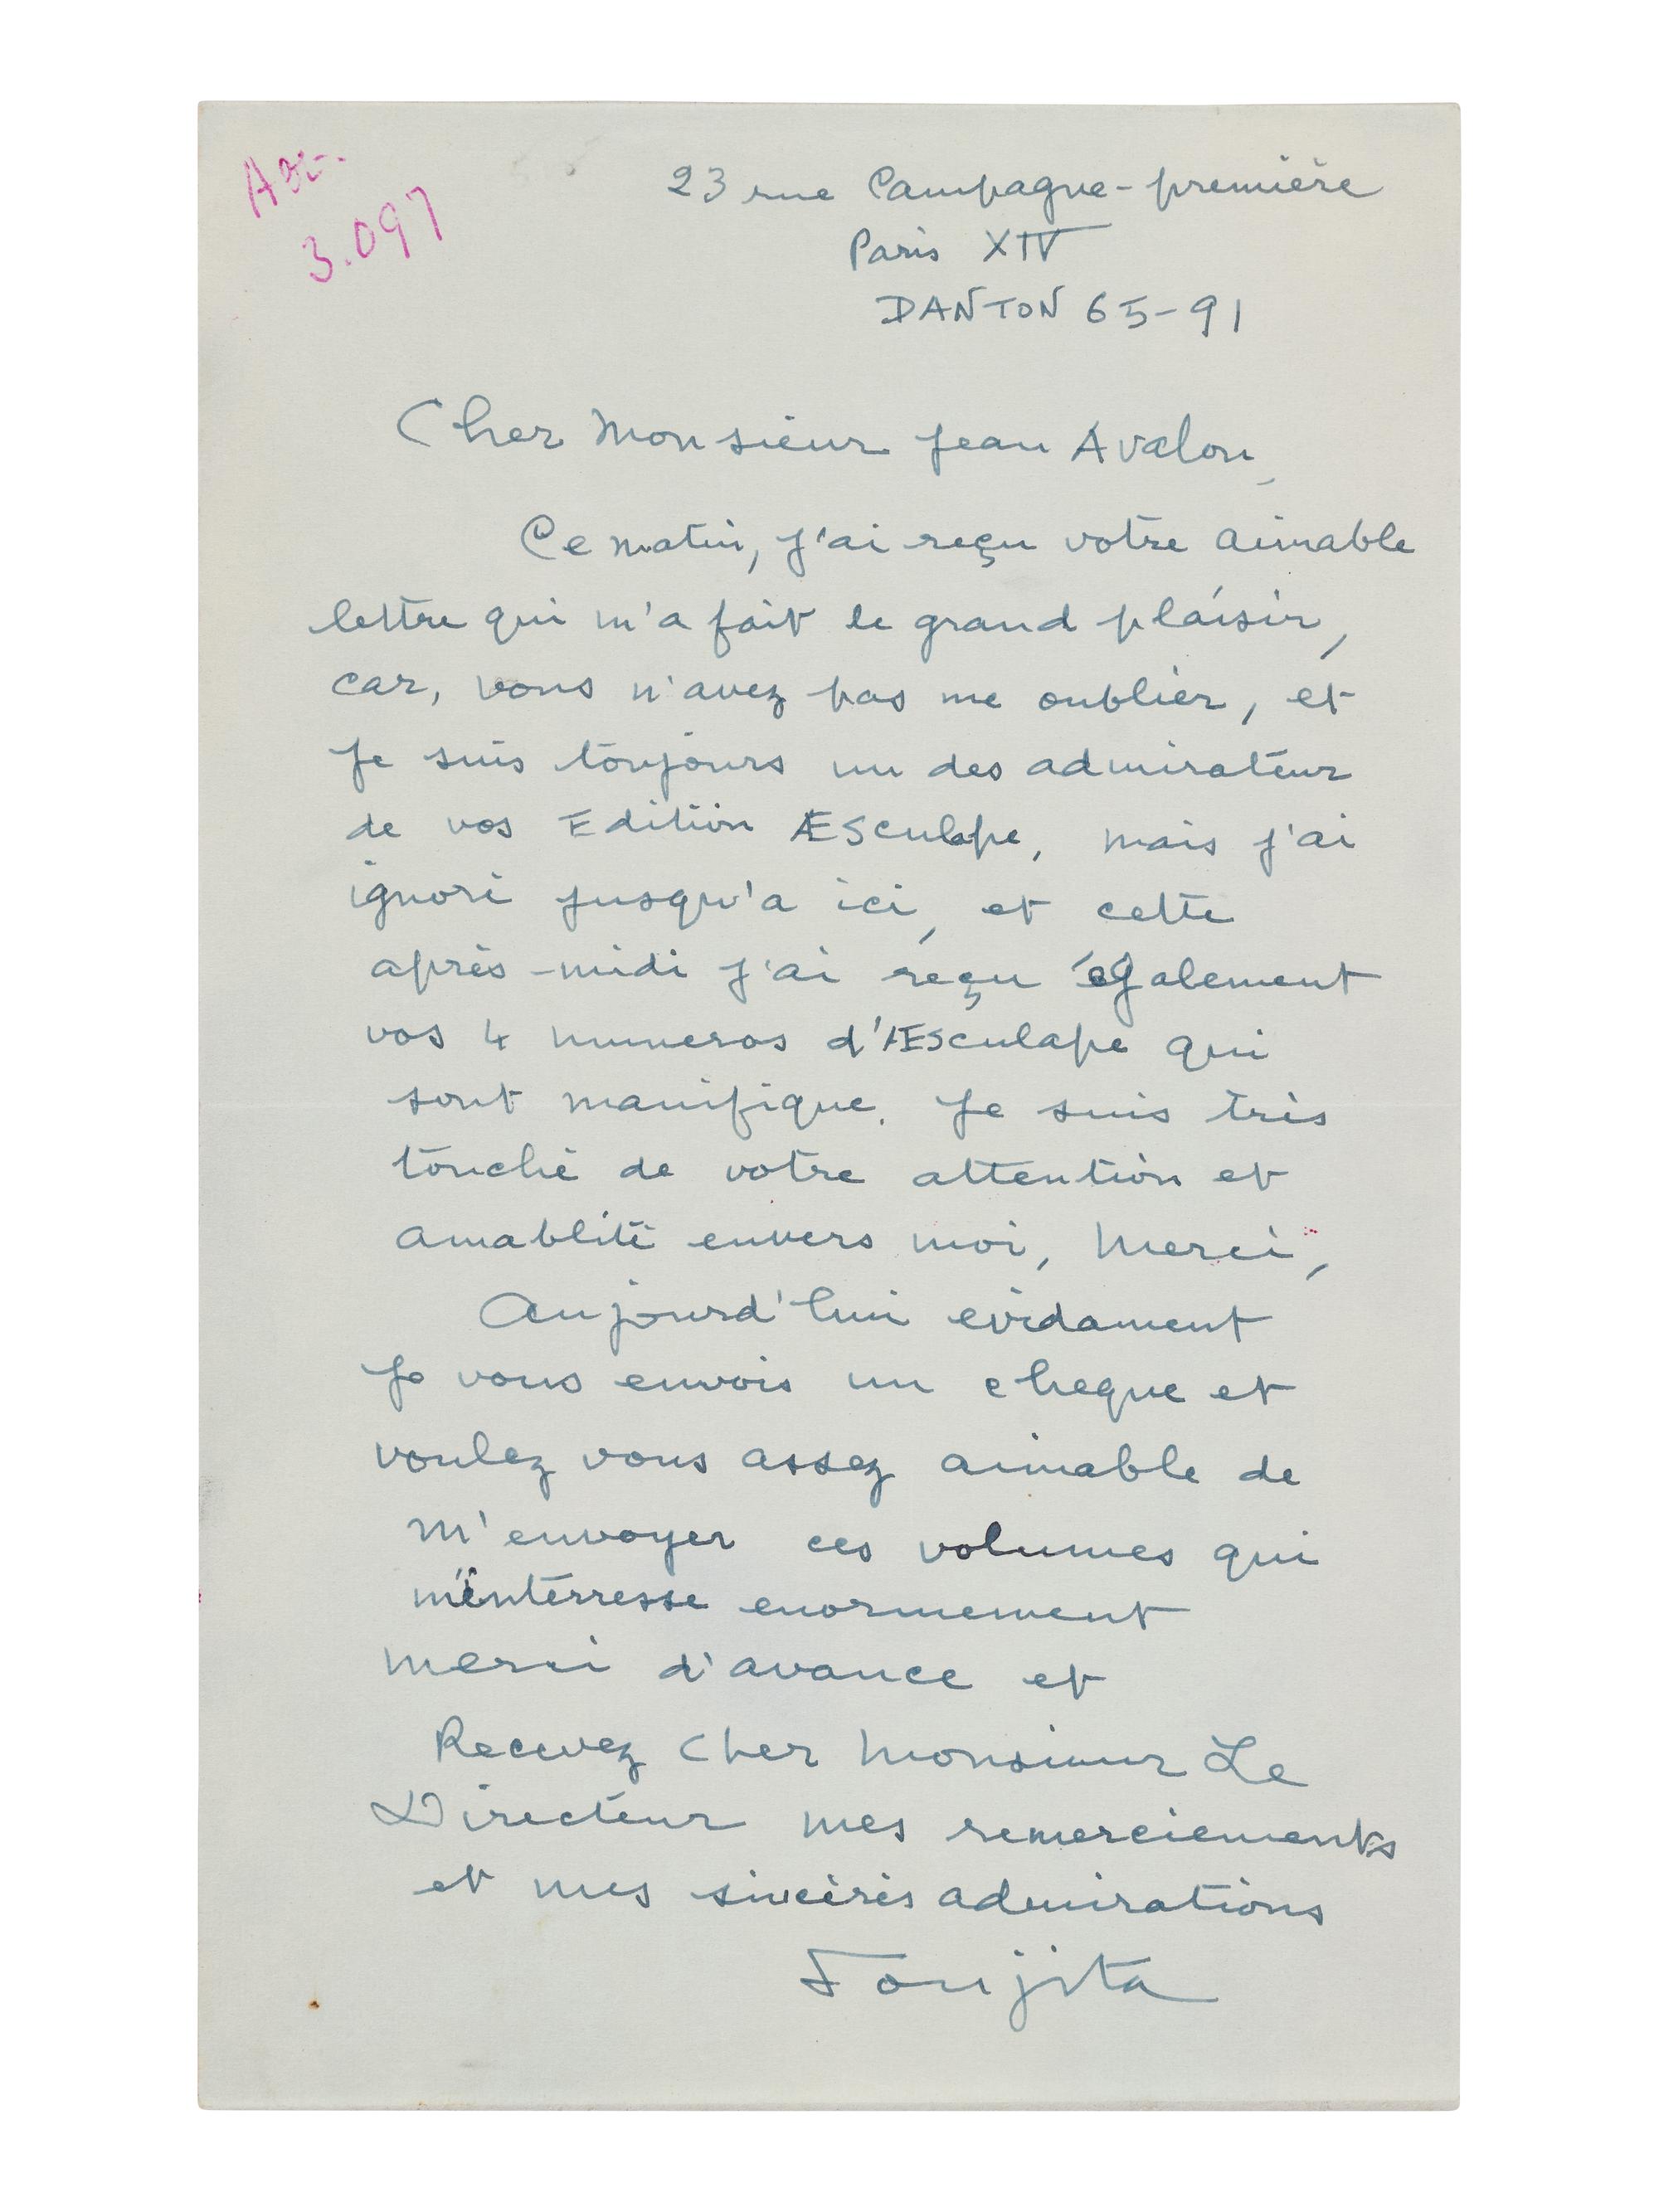 3.097
23 rue Campagne-première
Paris XIV
DANTON 65-91
Cher Monsieur Jean Avalon,
Ce matin, j'ai reçu votre aimable
lettre qui m'a fait le grand plaisir,
car, vous n'avez pas me oublier, et
Je suis toujours un des admirateur
de vos Edition ÆSculape, mais j'ai
ignoré jusqu'a ici, et cette
après-midi j'ai reçu également
vos 4 numeros d'ÆSculape qui
sont manifique. Je suis très
touché de votre attention et
amablité envers moi, Merci,
Aujourd'hui evidament
Je vous envois un cheque et
voulez vous assez aimable de
m'envoyer ces volumes qui
m'interresse enormement
merci d'avance et
Recevez Cher Monsieur Le
Directeur mes remerciements
et mes sincérès admirations
Foujita